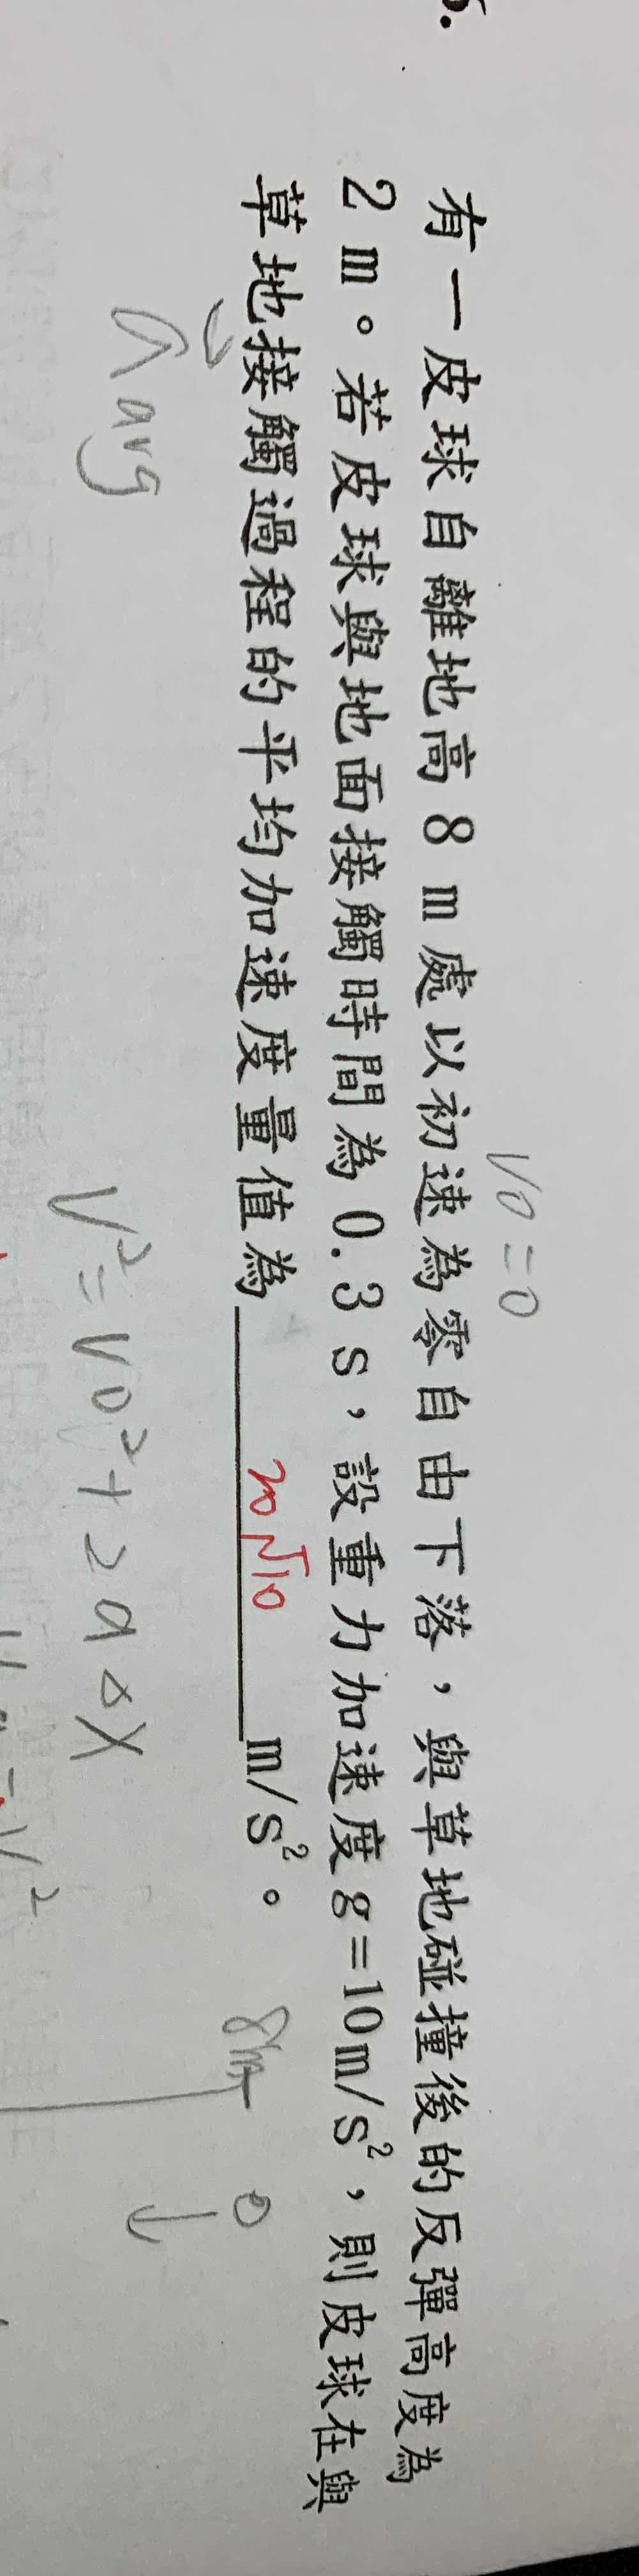 有一皮球自離地高8 m處以初速為零自由下落，與草地碰撞後的反彈高度為
2 m。若皮球與地面接觸時間為0.3 s，設重力加速度g=10m/s²，則皮球在與
草地接觸過程的平均加速度量值為 20√10 m/s²。
V0=0
a avg
V²=V0²+2a△X
8m
0